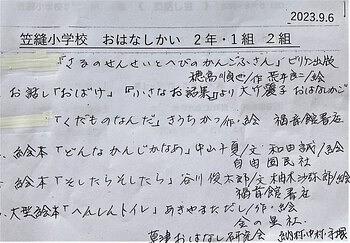 2023.9.6
笠縫小学校 おはなしかい 2年・1組 2組
『さるのせんせいとへびのかんごふさん』ビリケン出版
穂高順也/作 荒井良二/絵
お話し「おばけ」『小さなお話集』より 大竹麗子 おはなしかご
『くだものなんだ』きうちかつ/作・絵 福音館書店
絵本『どんなかんじかなあ』中山千夏/文 和田誠/絵
自由国民社
絵本『そしたらそしたら』谷川俊太郎/文 柚木沙弥郎/絵
福音館書店
大型絵本『へんしんトイレ』あきやまただし/作・絵
金の星社
草津おはなし研究会 納村・中村・